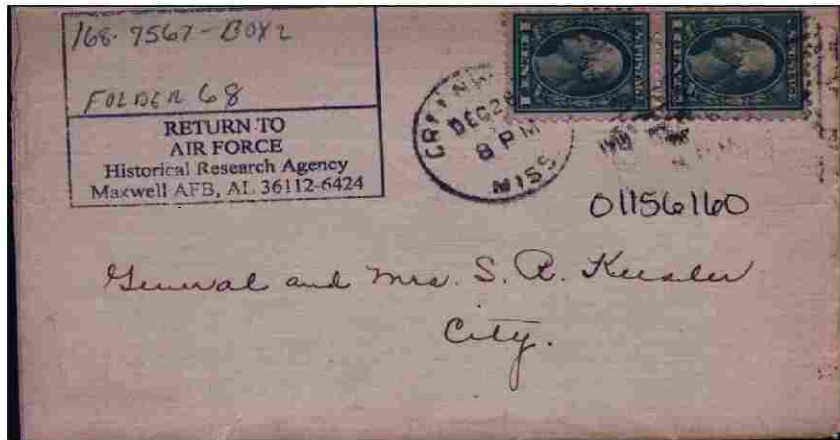 168.7567-BOX 2
FOLDER 68
RETURN TO
AIR FORCE
Historical Research Agency
Maxwell AFB, AL 36112-6424
DEC 28
8 PM
MISS
01156160
General and Mrs. S. A. Keesler
City.